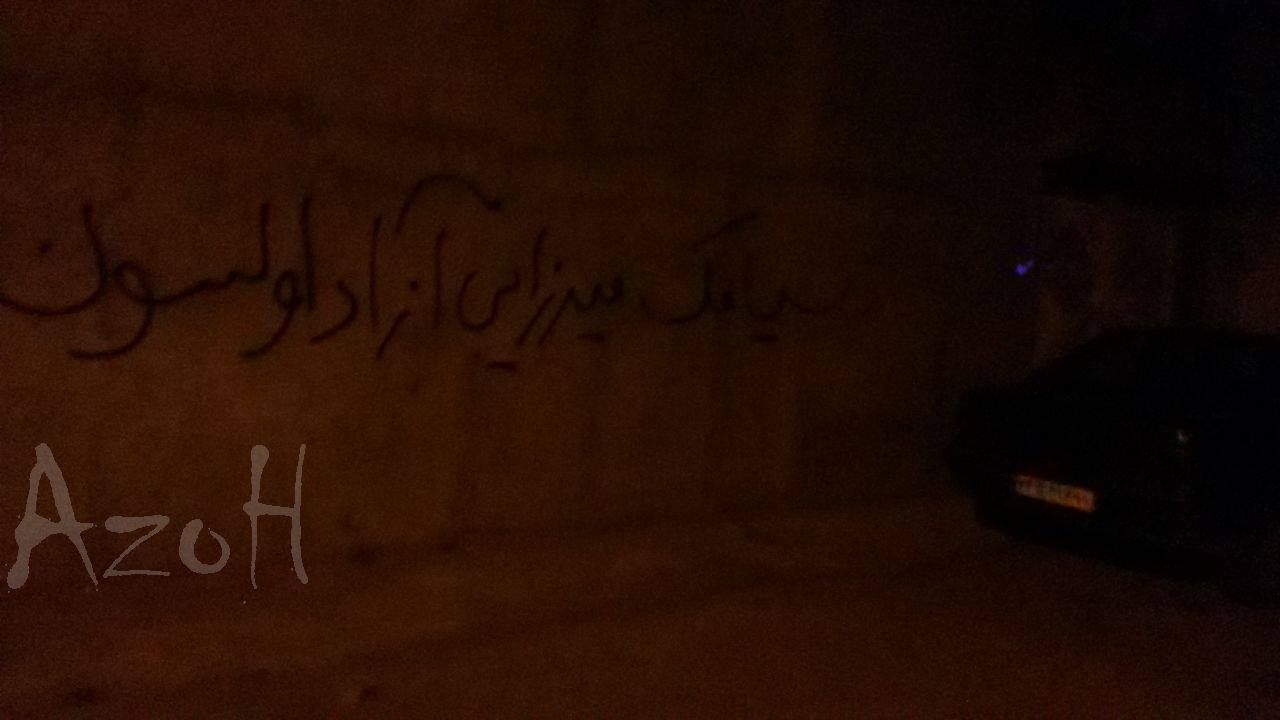 سیامک میرزایی آزاد اولسون
AzoH